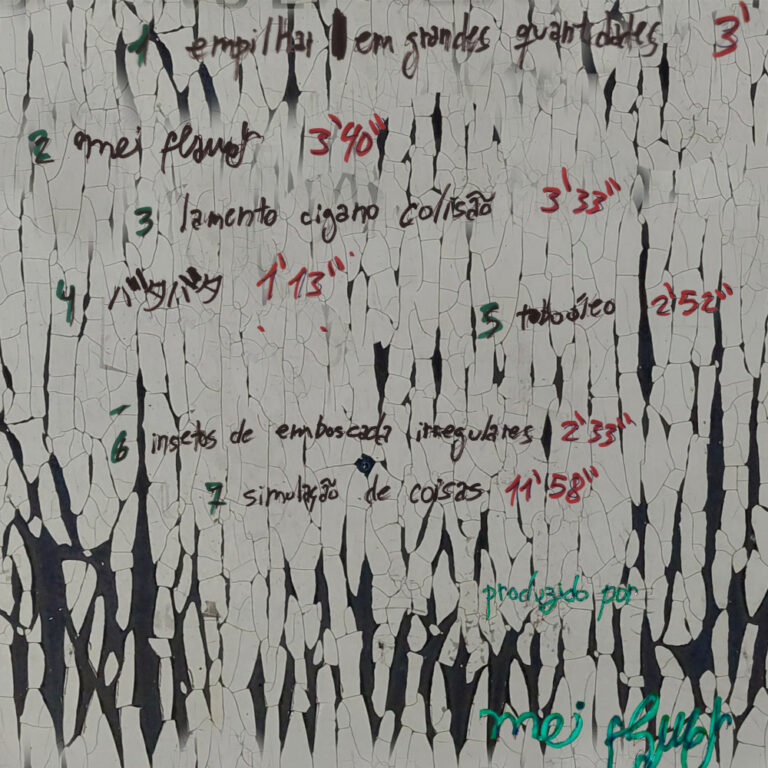 1 empilhar em grandes quantidades 3'
2 mei 3'40"
3 lamento cigano colisão 3'33"
4 バタバタ 1'13"
5 2'52"
6 insetos de emboscada irregulares 2'33"
7 simulação de coisas 11'58"
produzido por
mei